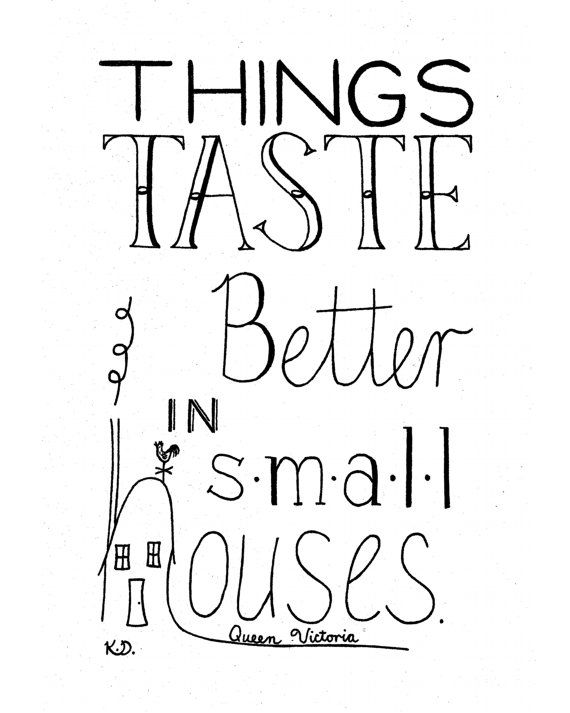 THINGS
TASTE
Better
IN
s·m·a·l·l
houses.
Queen Victoria
K.D.